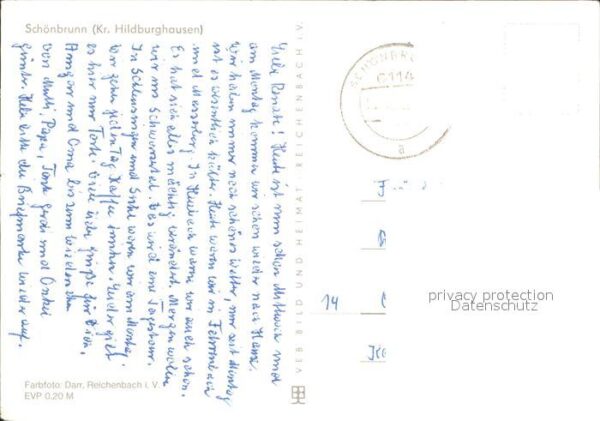 Schönbrunn (Kr. Hildburghausen)
Liebe Renate! Heute ist nun schon Mittwoch und
am Montag kommen wir schon wieder nach Hause.
Wir haben immer noch schönes Wetter, nur seit Montag
ist es wesentlich kühler. Heute waren wir in Fehrenbach
und Masserberg. In Heubach waren wir auch schon.
Es hat sich alles mächtig verändert. Morgen wollen
wir ins Schwarzatal. Das wird eine Tagestour.
In Schleusingen und Suhl waren wir am Montag.
Wir gehen jeden Tag Kaffee trinken. Leider gibt
es hier nur Torte. Viele liebe Grüße für Dich,
und Oma bis zum Wiedersehen
von Mutti, Papa, Tante und Onkel
Günter. Hebe bitte die Briefmarke wieder auf.
Farbfoto: Darr, Reichenbach i. V.
EVP 0,20 M
VEB BILD UND HEIMAT REICHENBACH I. V.
6114
a
14
privacy protection
Datenschutz